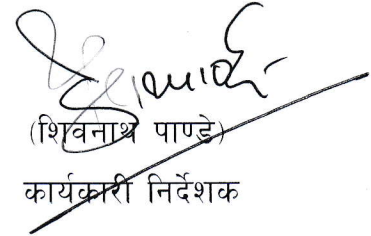 (शिवनाथ पाण्डे)
कार्यकारी निर्देशक